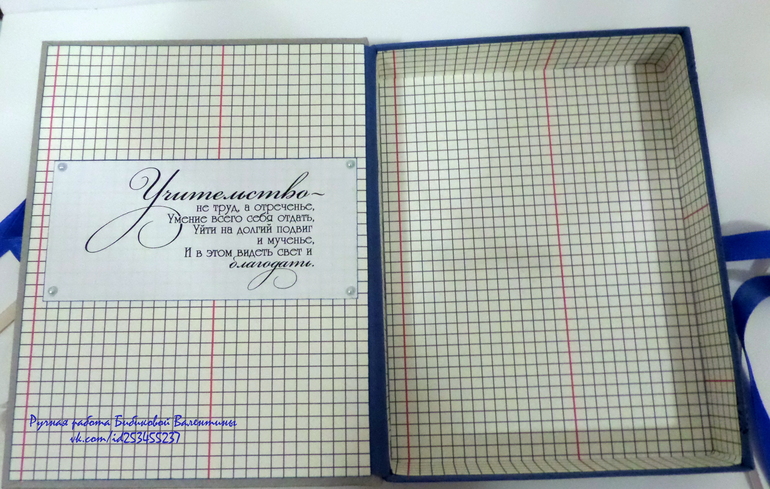 Учительство~
не труд, а отреченье,
Умение всего себя отдать,
Уйти на долгий подвиг
и мученье,
И в этом видеть свет и
благодать.
Ручная работа Бибиковой Валентины
vk.com/id253455237